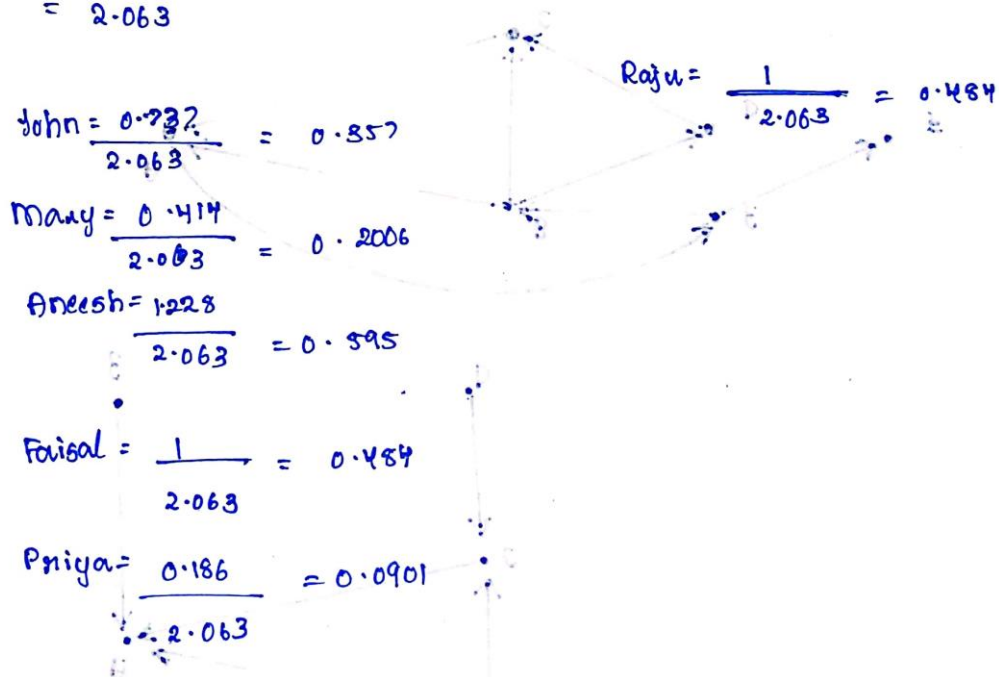 = 2.063
Raju = 1 / 2.063 = 0.484
John = 0.737 / 2.063 = 0.357
Mary = 0.414 / 2.063 = 0.2006
Aneesh = 1.228 / 2.063 = 0.595
Faisal = 1 / 2.063 = 0.484
Priya = 0.186 / 2.063 = 0.0901